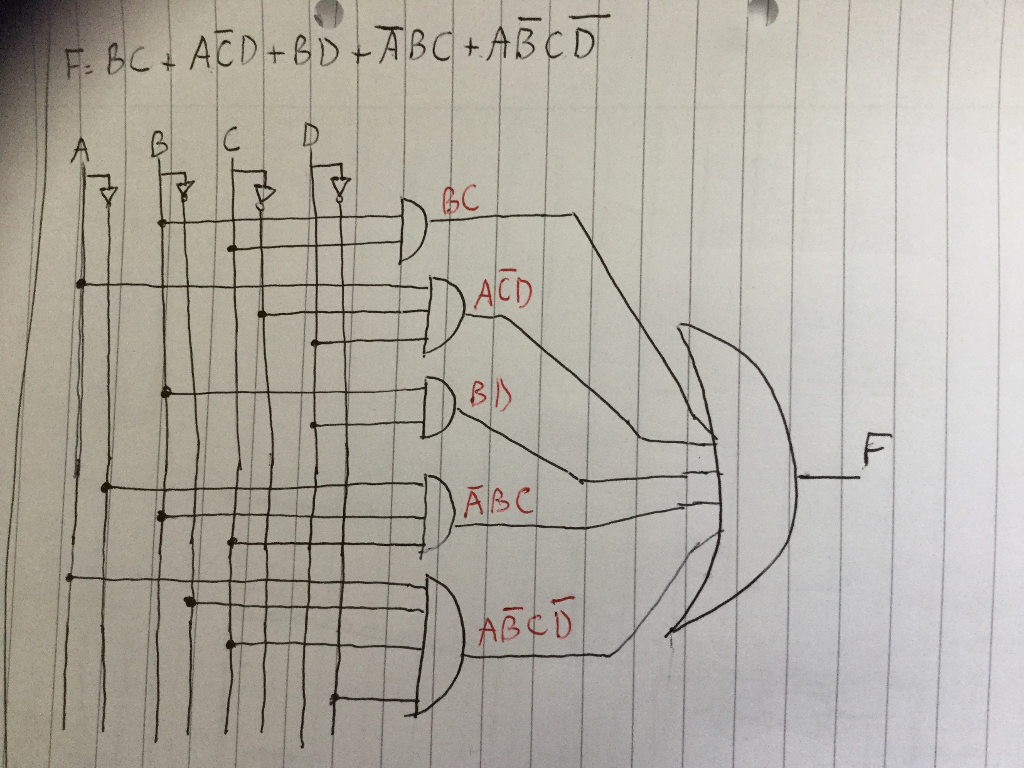 F= BC + AC̅D + BD + A̅BC + AB̅CD̅
A B C D
BC
AC̅D
BD
F
A̅BC
AB̅CD̅